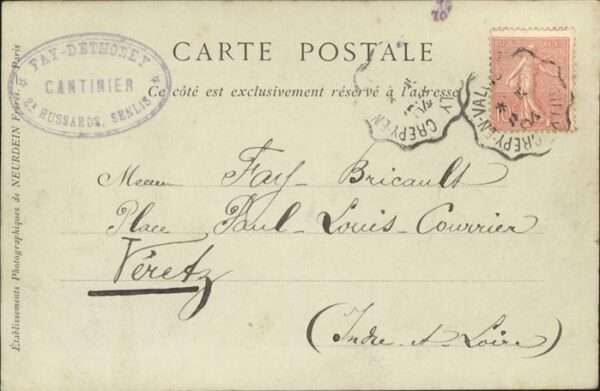 CARTE POSTALE
Ce côté est exclusivement réservé à l'adresse
FAY-DETHOREY
CANTINIER
HUSSARDS, SENLIS
CREPY-EN-VAL
Fay-Bricault
Place Paul-Louis-Courrier
Véretz
(Indre-et-Loire)
Établissements Photographiques de NEURDEIN Frères. — Paris